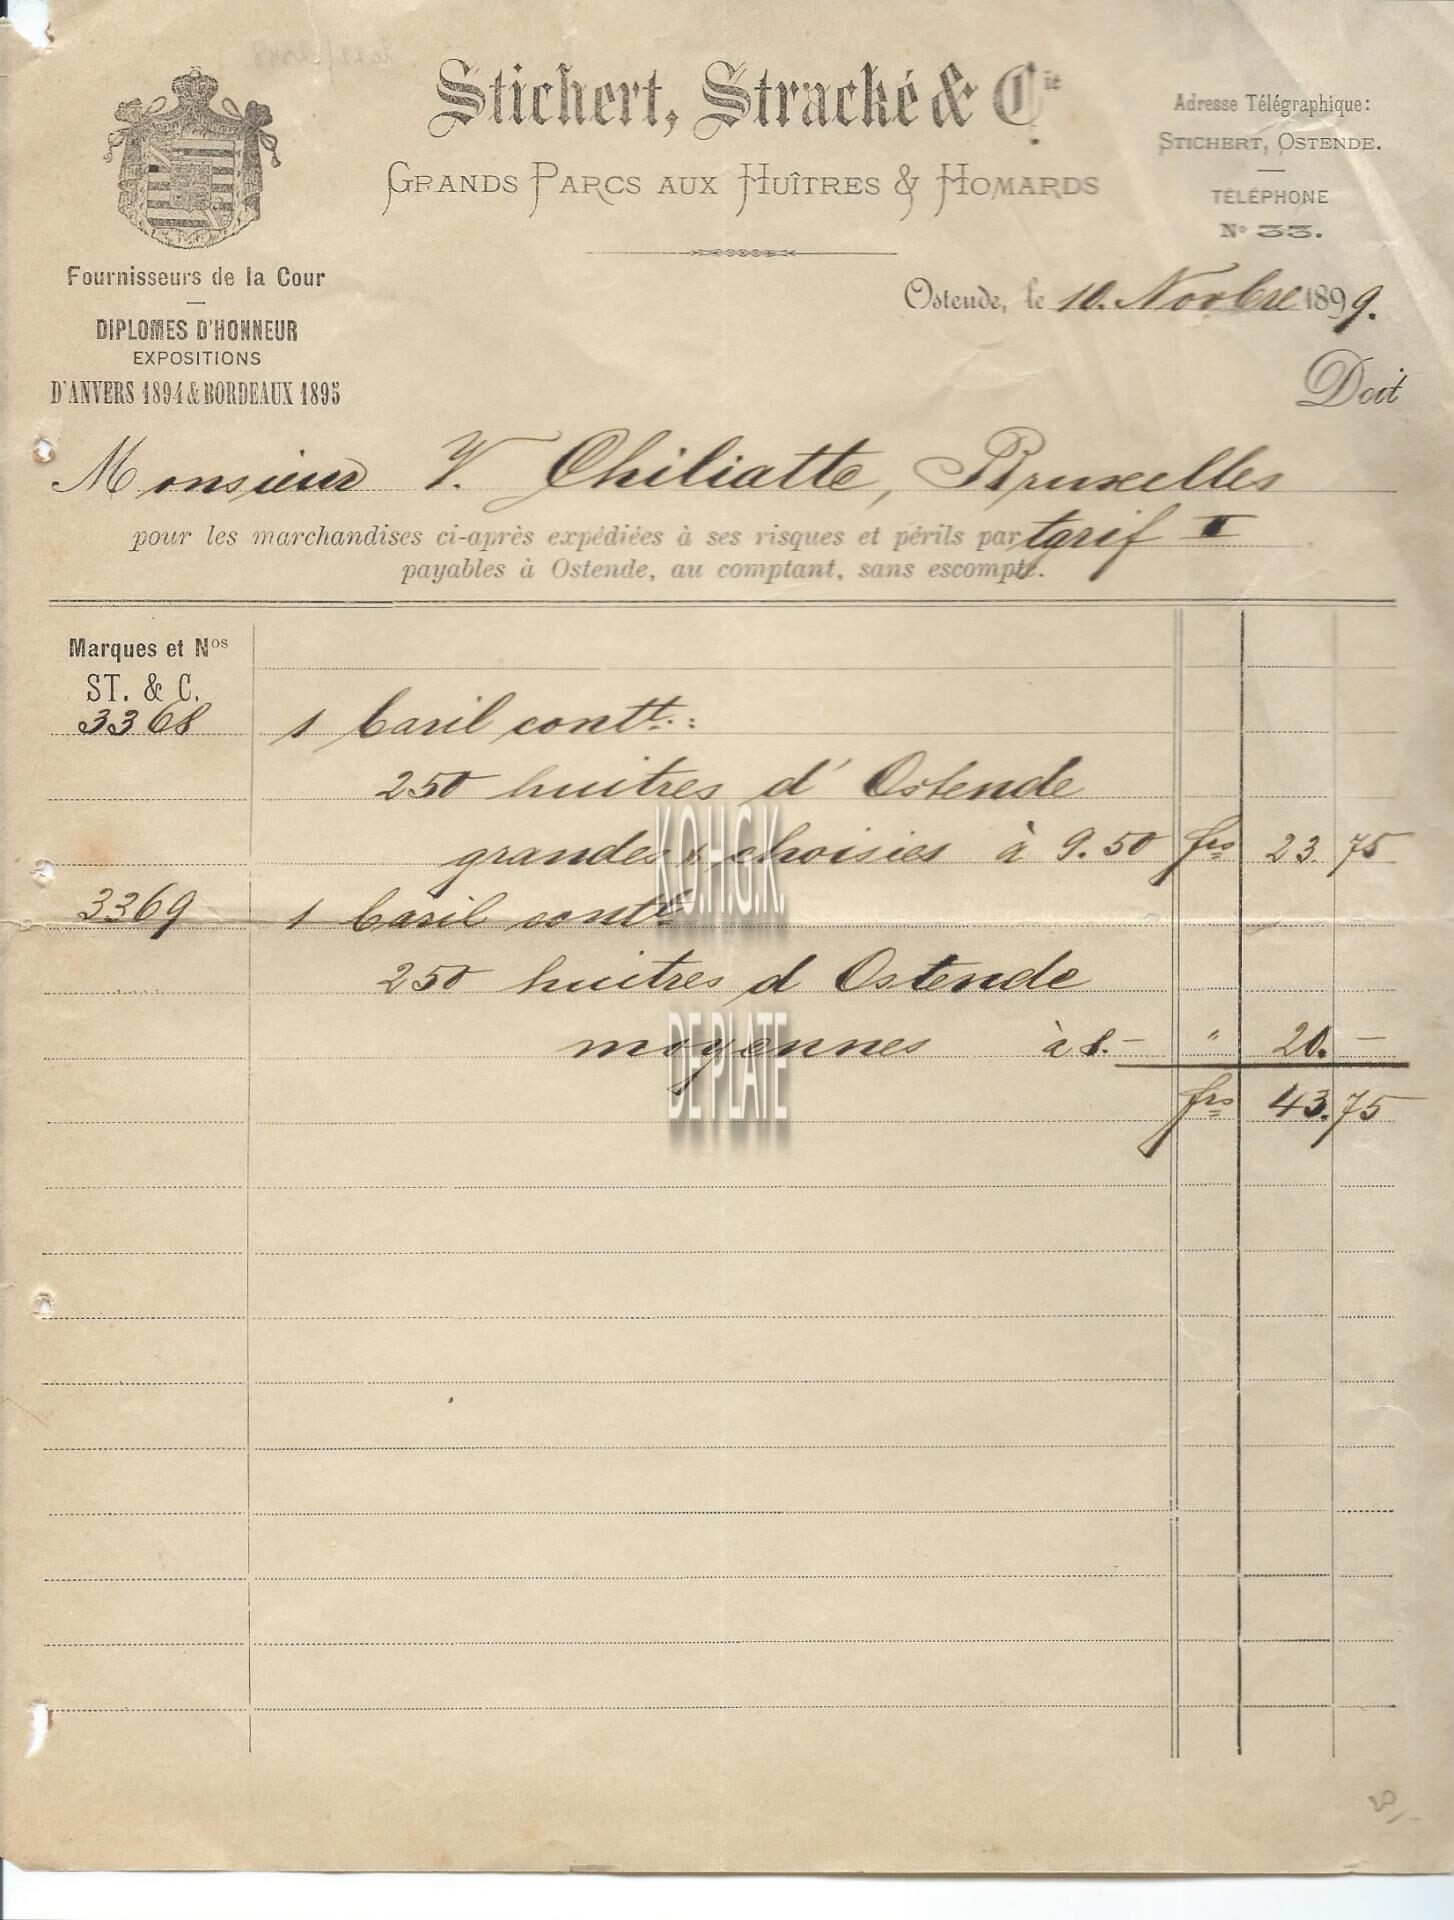 Stichert, Stracké & Cie
GRANDS PARCS AUX HUÎTRES & HOMARDS
Adresse Télégraphique:
STICHERT, OSTENDE.
TÉLÉPHONE
No 33.
Fournisseurs de la Cour
DIPLOMES D'HONNEUR
EXPOSITIONS
D'ANVERS 1894 & BORDEAUX 1895
Ostende, le 10. Novbre 1899.
Doit
Monsieur V. Chiliatte, Bruxelles
pour les marchandises ci-après expédiées à ses risques et périls par tarif I
payables à Ostende, au comptant, sans escompte.
Marques et Nos
ST. & C.
3368 1 baril contt.:
250 huitres d'Ostende
grandes & choisies à 9.50 frs 23.75
3369 1 baril contt
250 huitres d Ostende
moyennes à 8.- " 20.-
frs 43.75
K.O.H.G.K.
DE PLATE